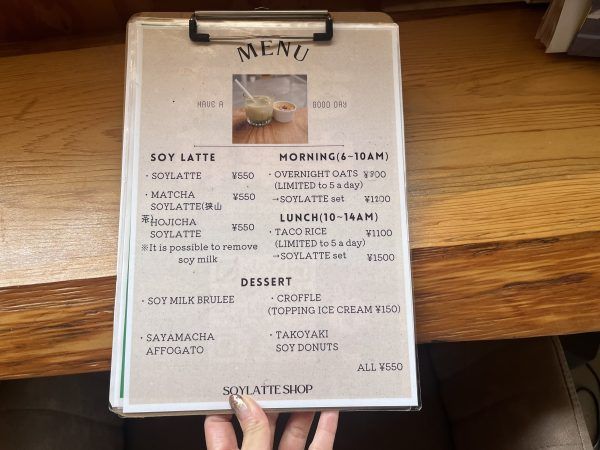 MENU
HAVE A GOOD DAY
SOY LATTE
・SOYLATTE ¥550
・MATCHA ¥550
SOYLATTE(狭山茶)
・HOJICHA ¥550
SOYLATTE
※It is possible to remove
soy milk
MORNING(6~10AM)
・OVERNIGHT OATS ¥900
(LIMITED to 5 a day)
→SOYLATTE set ¥1200
LUNCH(10~14AM)
・TACO RICE ¥1100
(LIMITED to 5 a day)
→SOYLATTE set ¥1500
DESSERT
・SOY MILK BRULEE
・CROFFLE
(TOPPING ICE CREAM ¥150)
・SAYAMACHA
AFFOGATO
・TAKOYAKI
SOY DONUTS
ALL ¥550
SOYLATTE SHOP